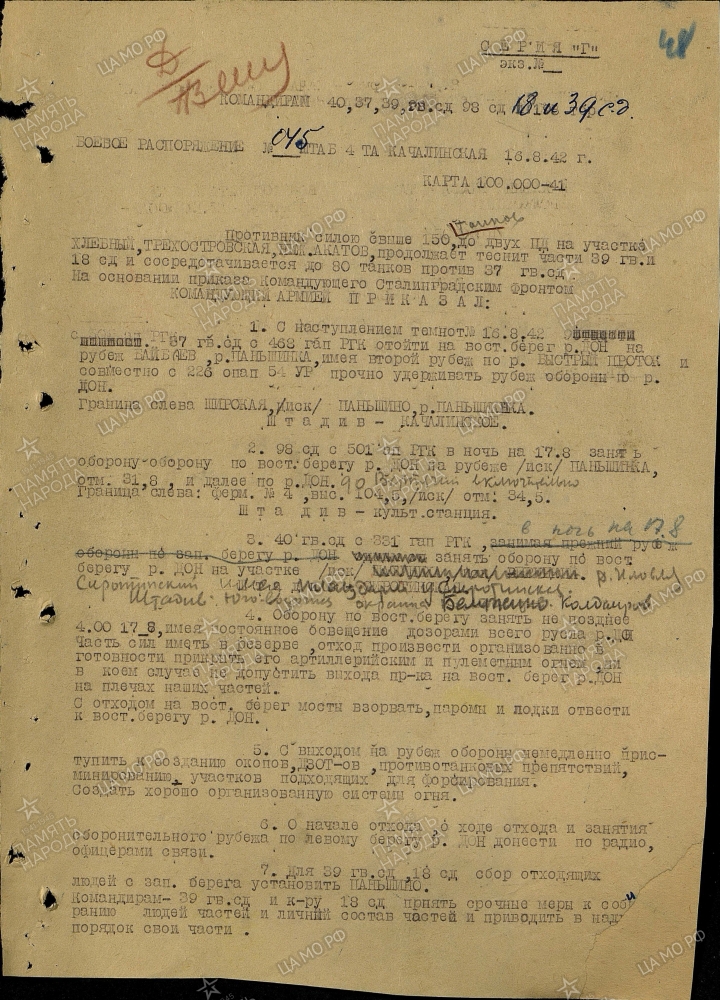 48
СЕРИЯ "Г"
экз.№__
КОМАНДИРАМ 40,37,39,гв.сд 98 сд 18 и 39 с.д.
БОЕВОЕ РАСПОРЯЖЕНИЕ № 045 ШТАБ 4 ТА КАЧАЛИНСКАЯ 16.8.42 г.
КАРТА 100.000-41
танков
Противник силою свыше 150, до двух ПД на участке
ХЛЕБНЫЙ,ТРЕХОСТРОВСКАЯ, АКАТОВ,продолжает теснит части 39 гв.и
18 сд и сосредотачивается до 80 танков против 37 гв.сд
На основании приказа Командующего Сталинградским фронтом
КОМАНДУЮЩИЙ АРМИЕЙ П Р И К А З А Л:
1. С наступлением темнот№ 16.8.42
37 гв.сд с 468 гап РГК отойти на вост.берег р.ДОН на
рубеж ВАЙБАЕВ ,р.ПАНЬШИНКА,имея второй рубеж по р. БЫСТРЫЙ ПРОТОК и
совместно с 226 опап 54 УР прочно удерживать рубеж обороны по р.
ДОН.
Граница слева ШИРОКАЯ,/иск/ ПАНЬШИНО,р.ПАНЬШИНКА.
Ш т а д и в - КАЧАЛИНСКОЕ.
2. 98 сд с 501 сп РГК в ночь на 17.8 занять
оборону-оборону по вост.берегу р. ДОН на рубеже /иск/ ПАНЬШИНКА,
отм. 31,8 , и далее по р.ДОН. до включительно
Граница слева: ферм. № 4 ,выс. 104,5,/иск/ отм: 34,5.
Ш т а д и в - культ.станция.
в ночь на 17.8
3. 40 гв.сд с 331 гап РГК ,занимая прежний рубеж
обороны по зап. берегу р. ДОН занять оборону по вост
берегу р. ДОН на участке /иск/ р. Иловля
Сиротинский
Штадив - юго-восточ окраина Колдаиров
4. Оборону по вост.берегу занять не позднее
4.00 17_8,имея постоянное освещение дозорами всего русла р.ДОН
Часть сил иметь в резерве ,отход произвести организованно в
готовности прикрыть его артиллерийским и пулеметным огнем ,ни
в коем случае не допустить выхода пр-ка на вост. берег р.ДОН
на плечах наших частей.
С отходом на вост. берег мосты взорвать,паромы и лодки отвести
к вост.берегу р. ДОН.
5. С выходом на рубеж обороны немедленно прис-
тупить к созданию окопов,ДЗОТ-ов ,противотанковых препятствий,
минированию участков подходящих для форсирования.
Создать хорошо организованную систему огня.
6. О начале отхода ,о ходе отхода и занятия
оборонительного рубежа по левому берегу р. ДОН донести по радио,
офицерами связи.
7. Для 39 гв.сд ,18 сд сбор отходящих
людей с зап. берега установить ПАНЬШИНО.
Командирам- 39 гв.сд и к-ру 18 сд прнять срочные меры к соби
ранию людей частей и личний состав частей и приводить в надл
порядок свои части .